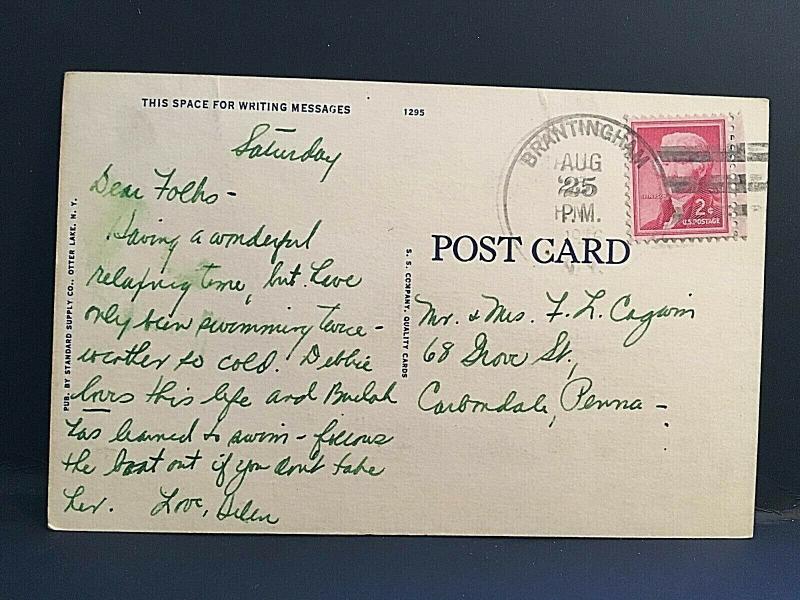 THIS SPACE FOR WRITING MESSAGES
1295
Saturday
Dear Folks -
Having a wonderful
relaxing time, but have
only been swimming twice -
weather so cold. Debbie
loves this life and Beulah
has learned to swim - follows
the boat out if you don't take
her. Love, Helen
PUB. BY STANDARD SUPPLY CO., OTTER LAKE, N. Y.
S. S. COMPANY, QUALITY CARDS
BRANTINGHAM
AUG
25
P.M.
N.Y.
2¢
U.S. POSTAGE
POST CARD
Mr. & Mrs. F. L. Cagwin
68 Grove St.,
Carbondale, Penna -